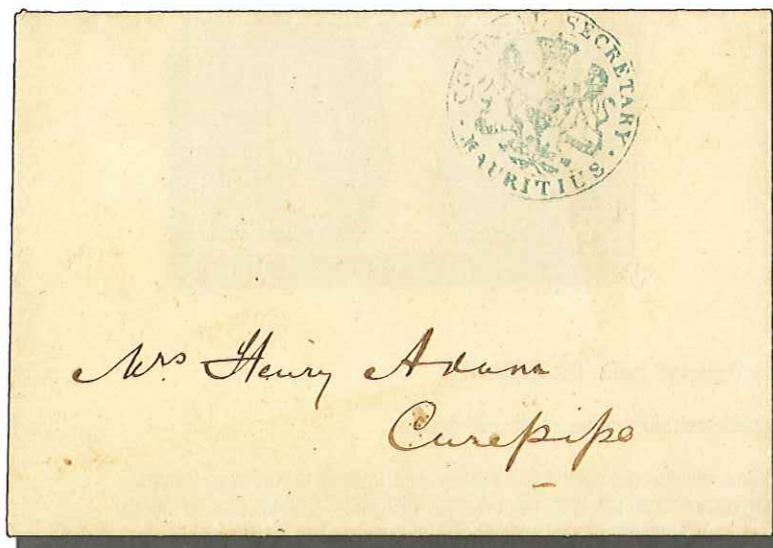 COLONIAL SECRETARY.
MAURITIUS.
Mrs Henry Adam
Curepipe